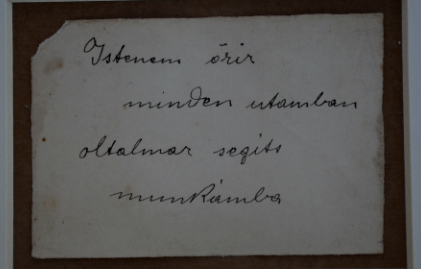 Istenem őrir
minden utamban
oltalmar segits
munkámba